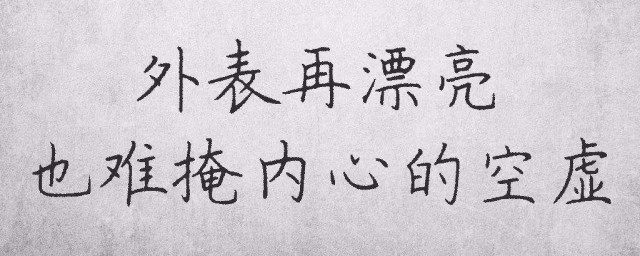 外表再漂亮
也难掩内心的空虚